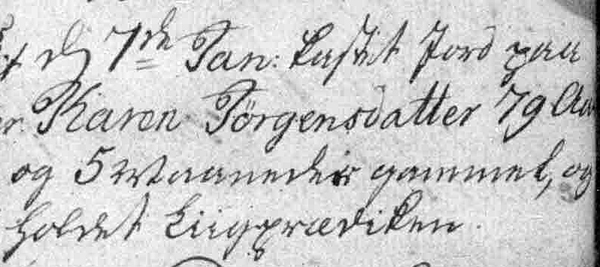 d. 7de Jan: kastet Jord paa
Karen Jörgensdatter 79 Aar
og 5 Maaneder gammel, og
holdet Liigprædiken.